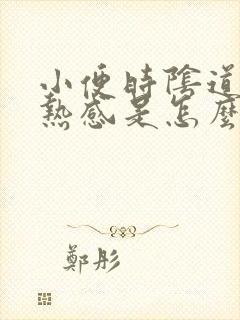 小便時陰道
熱感是怎麼
鄭彤